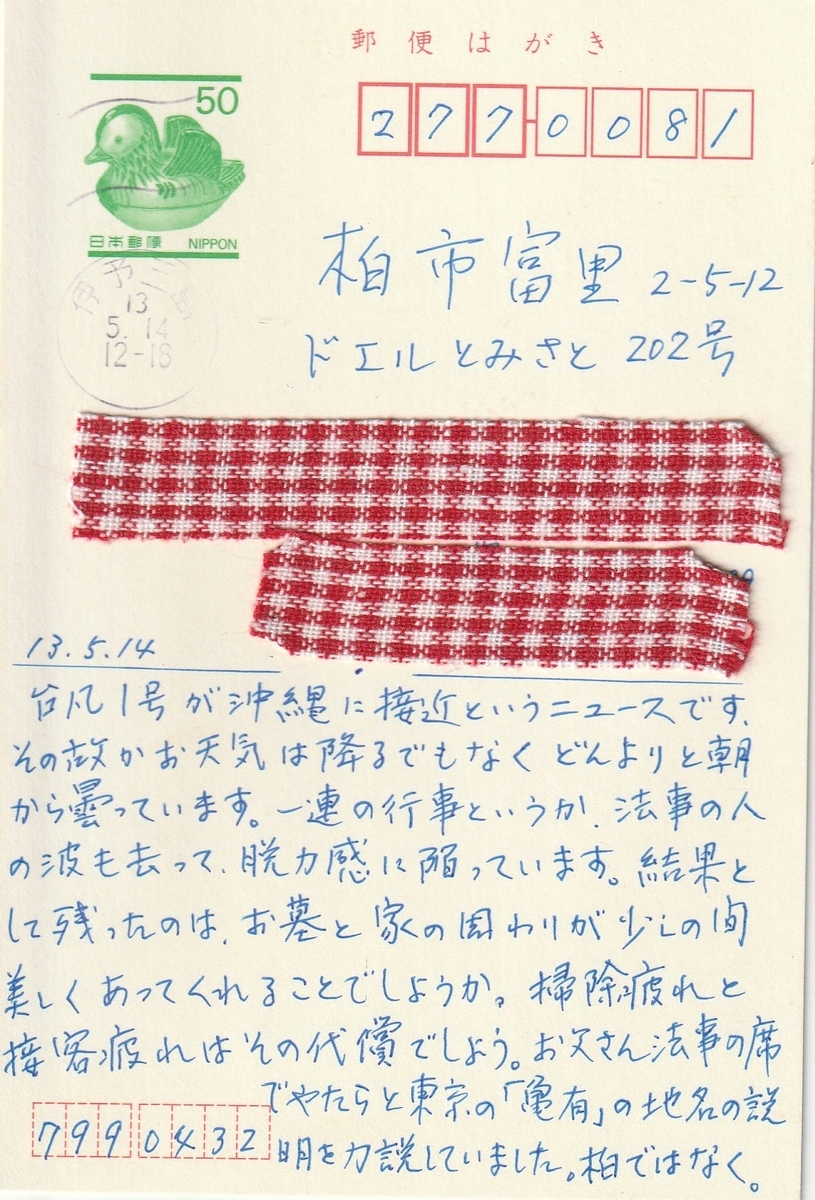 郵便はがき
50
日本郵便 NIPPON
277-0081
伊予三島
13
5.14
12-18
柏市富里 2-5-12
ドエルとみさと 202号
13.5.14
台風1号が沖縄に接近というニュースです、
その故かお天気は降るでもなくどんよりと朝
から曇っています。一連の行事というか、法事の人
の波も去って、脱力感に陥っています。結果と
して残ったのは、お墓と家の周わりが少しの間
美しくあってくれることでしょうか。掃除疲れと
接客疲れはその代償でしょう。お父さん法事の席
でやたらと東京の「亀有」の地名の説
明を力説していました。柏ではなく。
7990432